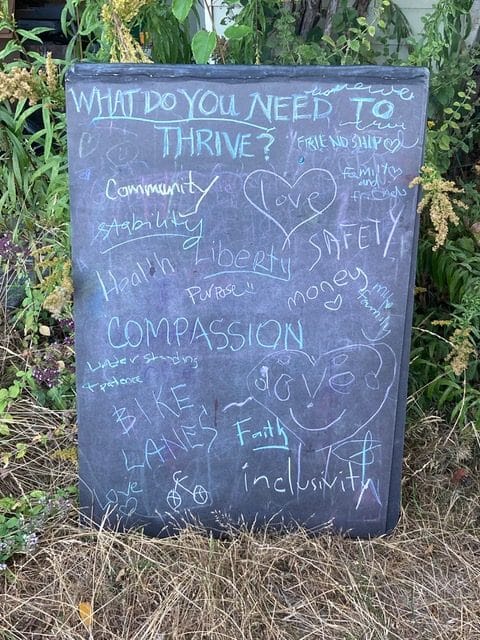 WHAT DO YOU NEED TO
THRIVE?
FRIENDSHIP
family
and
friends
Community
love
stability
SAFETY
Health
Liberty
Purpose
money
my
family
COMPASSION
understanding
+ patience
love
BIKE
LANES
Faith
inclusivity
Love